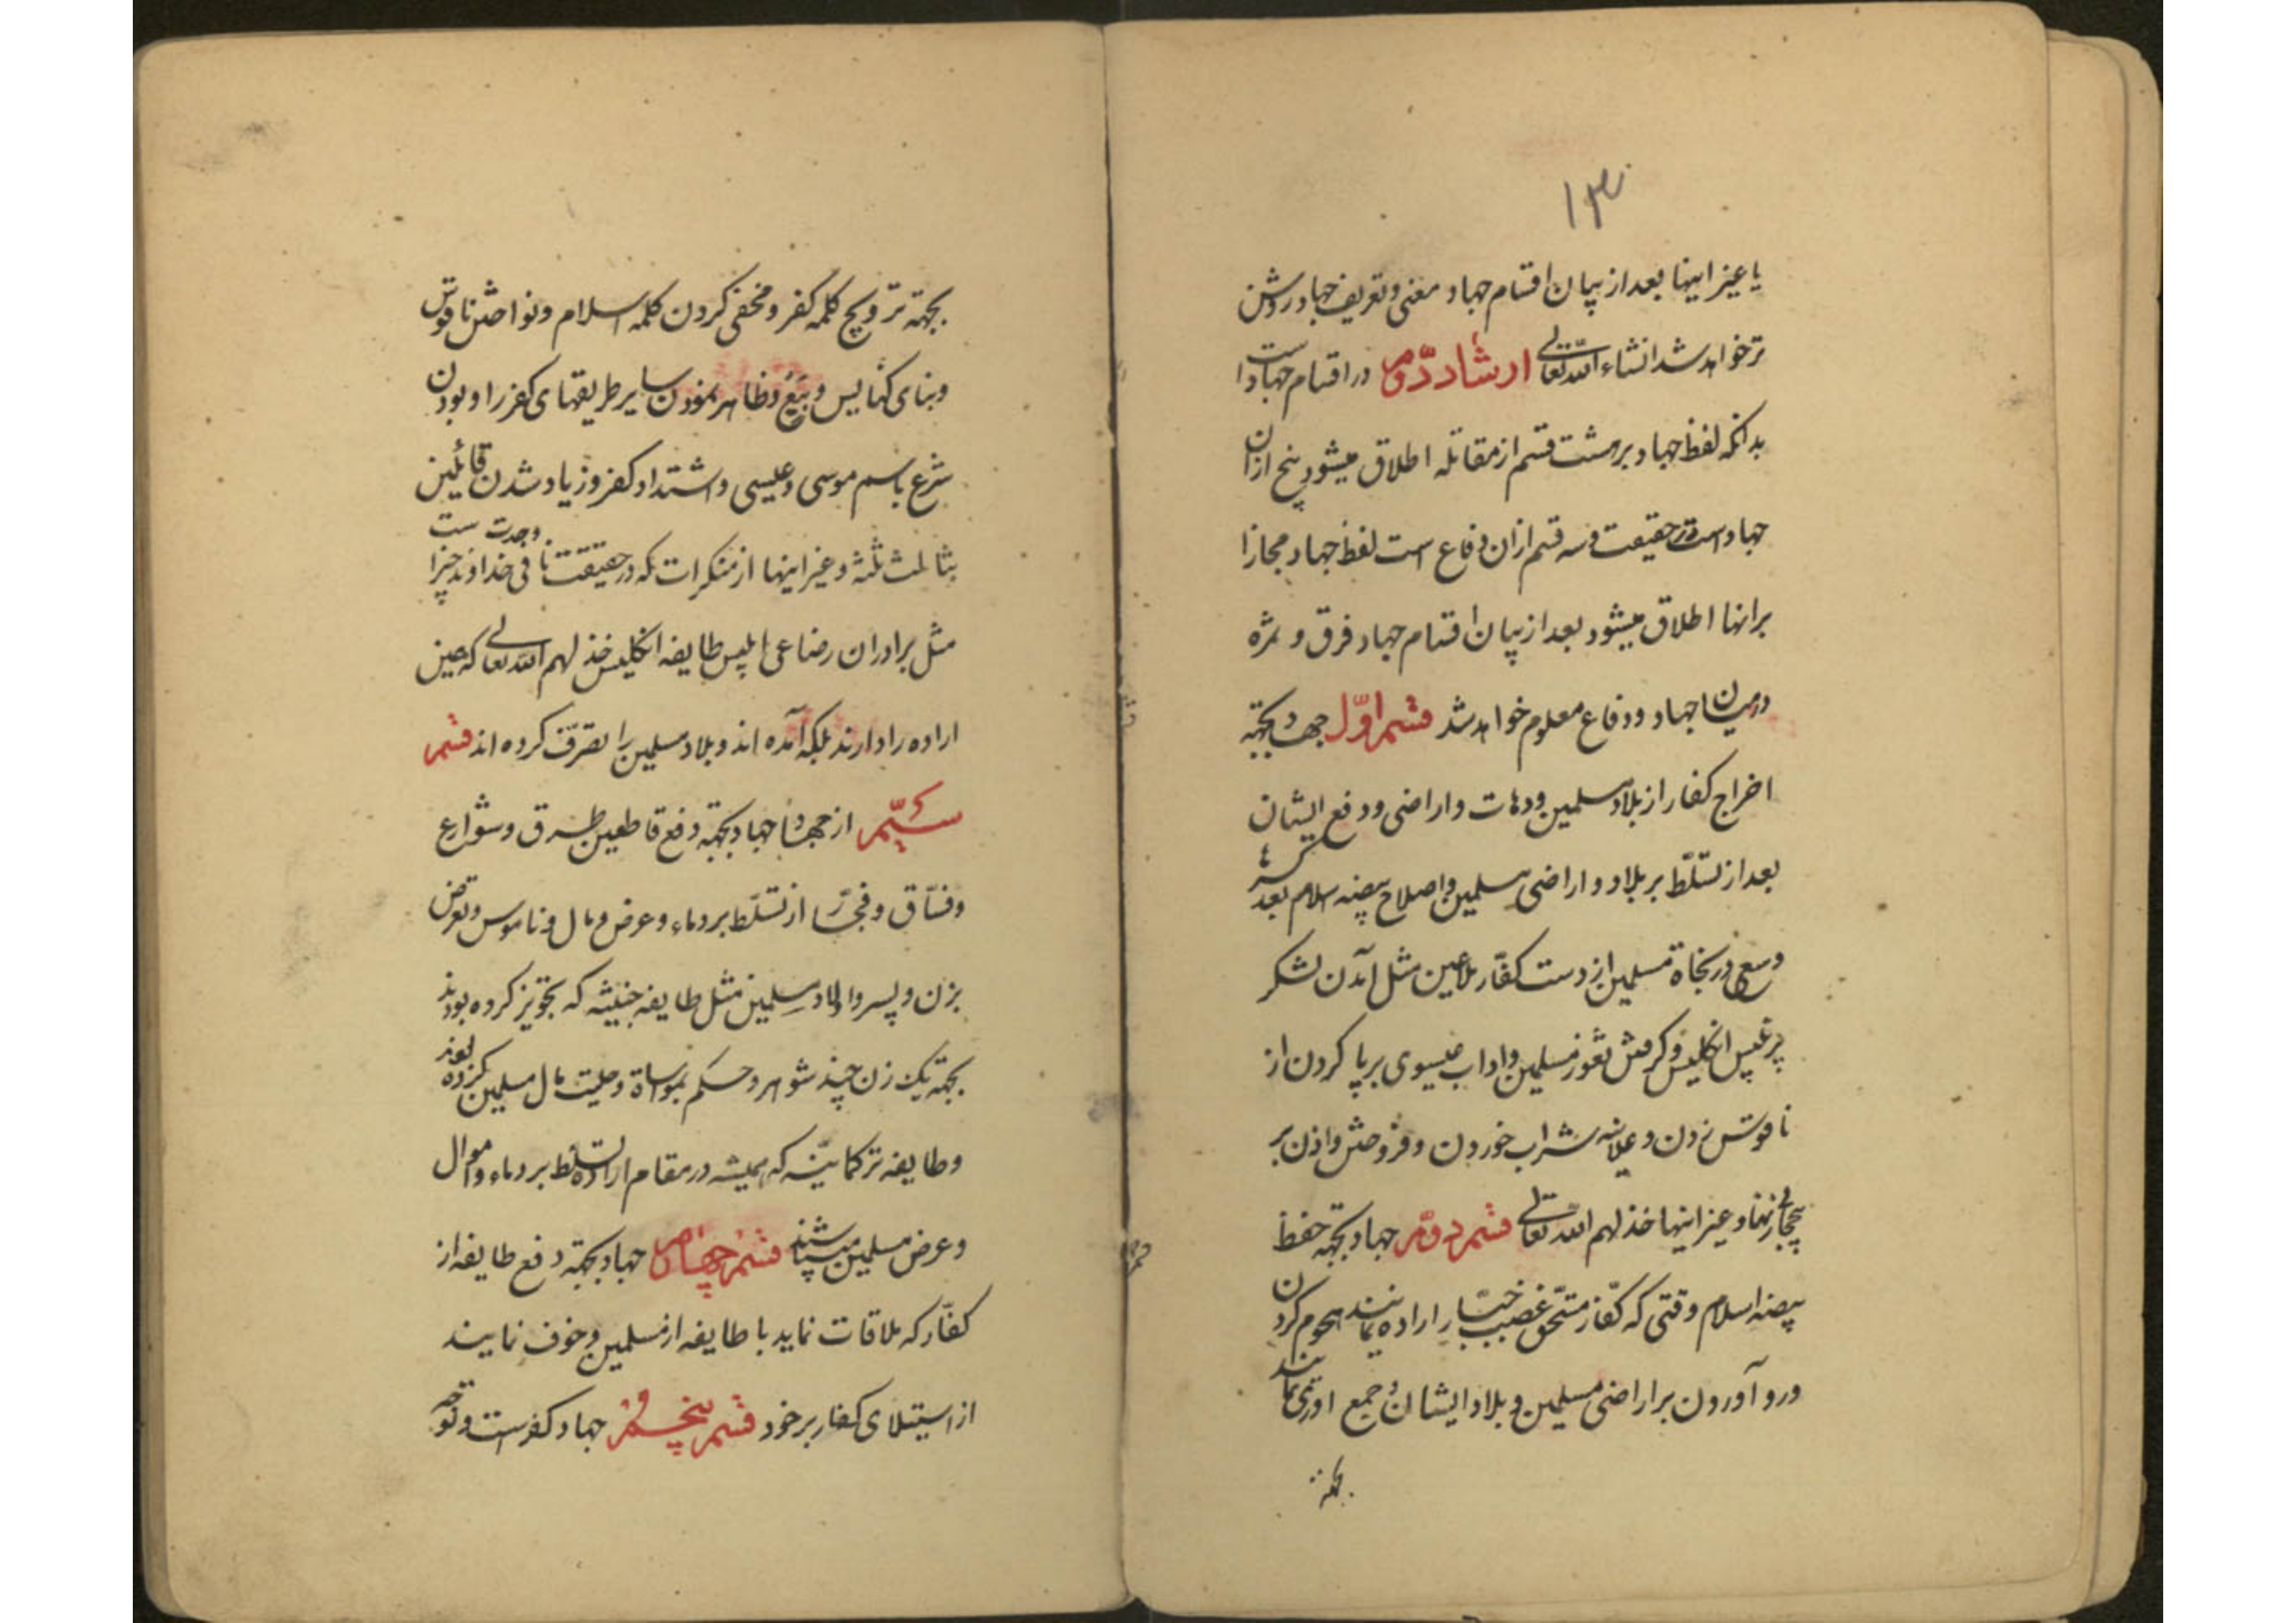 ۱۳
یا غیر اینها بعد از بیان اقسام جهاد معنی و تعریف جهاد روشن
تر خواهد شد انشاء الله تعالی ارشاد دوم در اقسام جهاد است
بدانکه لفظ جهاد بر هشت قسم از مقاتله اطلاق میشود پنج از ان
جهاد است در حقیقت و سه قسم از ان دفاع است لفظ جهاد مجازا
بر انها اطلاق میشود بعد از بیان اقسام جهاد فرق و ثمره
در میان جهاد و دفاع معلوم خواهد شد قسم اوّل جهاد بجهته
اخراج کفار از بلاد مسلمین و دهات و اراضی و دفع ایشان
بعد از تسلّط بر بلاد و اراضی مسلمین و اصلاح بیضه اسلام بعد
و سعی در نجاة مسلمین از دست کفّار ملاعین مثل آمدن لشکر
پر تلبیس انکلیس و کرفتن ثغور مسلمین و اداب عیسوی بر پا کردن از
ناقوس زدن و علانیه شراب خوردن و فروختن و اذن بر
بیحجابی زنها و غیر اینها خذلهم الله تعالی قسم دوّم جهاد بجهته حفظ
بیضه اسلام وقتی که کفّار مستحق غضب جبّار اراده نمایند هجوم کردن
و رو آوردن بر اراضی مسلمین و بلاد ایشان و جمع اوری نمایند
بجهته
بجهته ترویج کلمه کفر و مخفی کردن کلمه اسلام و نواختن ناقوس
و بنای کنایس و بیَع و ظاهر نمودن سایر طریقهای کفر را و بودن
شرع باسم موسی و عیسی و اشتداد کفر و زیاد شدن قائلین
بثالث ثلثه و غیر اینها از منکرات که در حقیقت نافی وحدت خداوند است
مثل برادران رضاعی ابلیس طایفه انکلیس خذلهم الله تعالی که همین
اراده را دارند بلکه آمده اند و بلاد مسلمین را تصرّف کرده اند قسم
سیّم از جهاد جهاد بجهته دفع قاطعین طرق و شوارع
و فسّاق و فجّار از تسلّط بر دماء و عرض و مال و ناموس و تعرض
بزن و پسر و اولاد مسلمین مثل طایفه خبیثه که تجویز کرده بودند
بجهته یک زن چند شوهر و حکم بمواساة و حلیت مال مسلمین کرده بودند
و طایفه ترکمانیّه که همیشه در مقام اراده تسلّط بر دماء و اموال
و عرض مسلمین میباشند قسم چهارم جهاد بجهته دفع طایفه از
کفّار که ملاقات نماید با طایفه از مسلمین و خوف نمایند
از استیلای کفار بر خود قسم پنجم جهاد کفر است و توجه